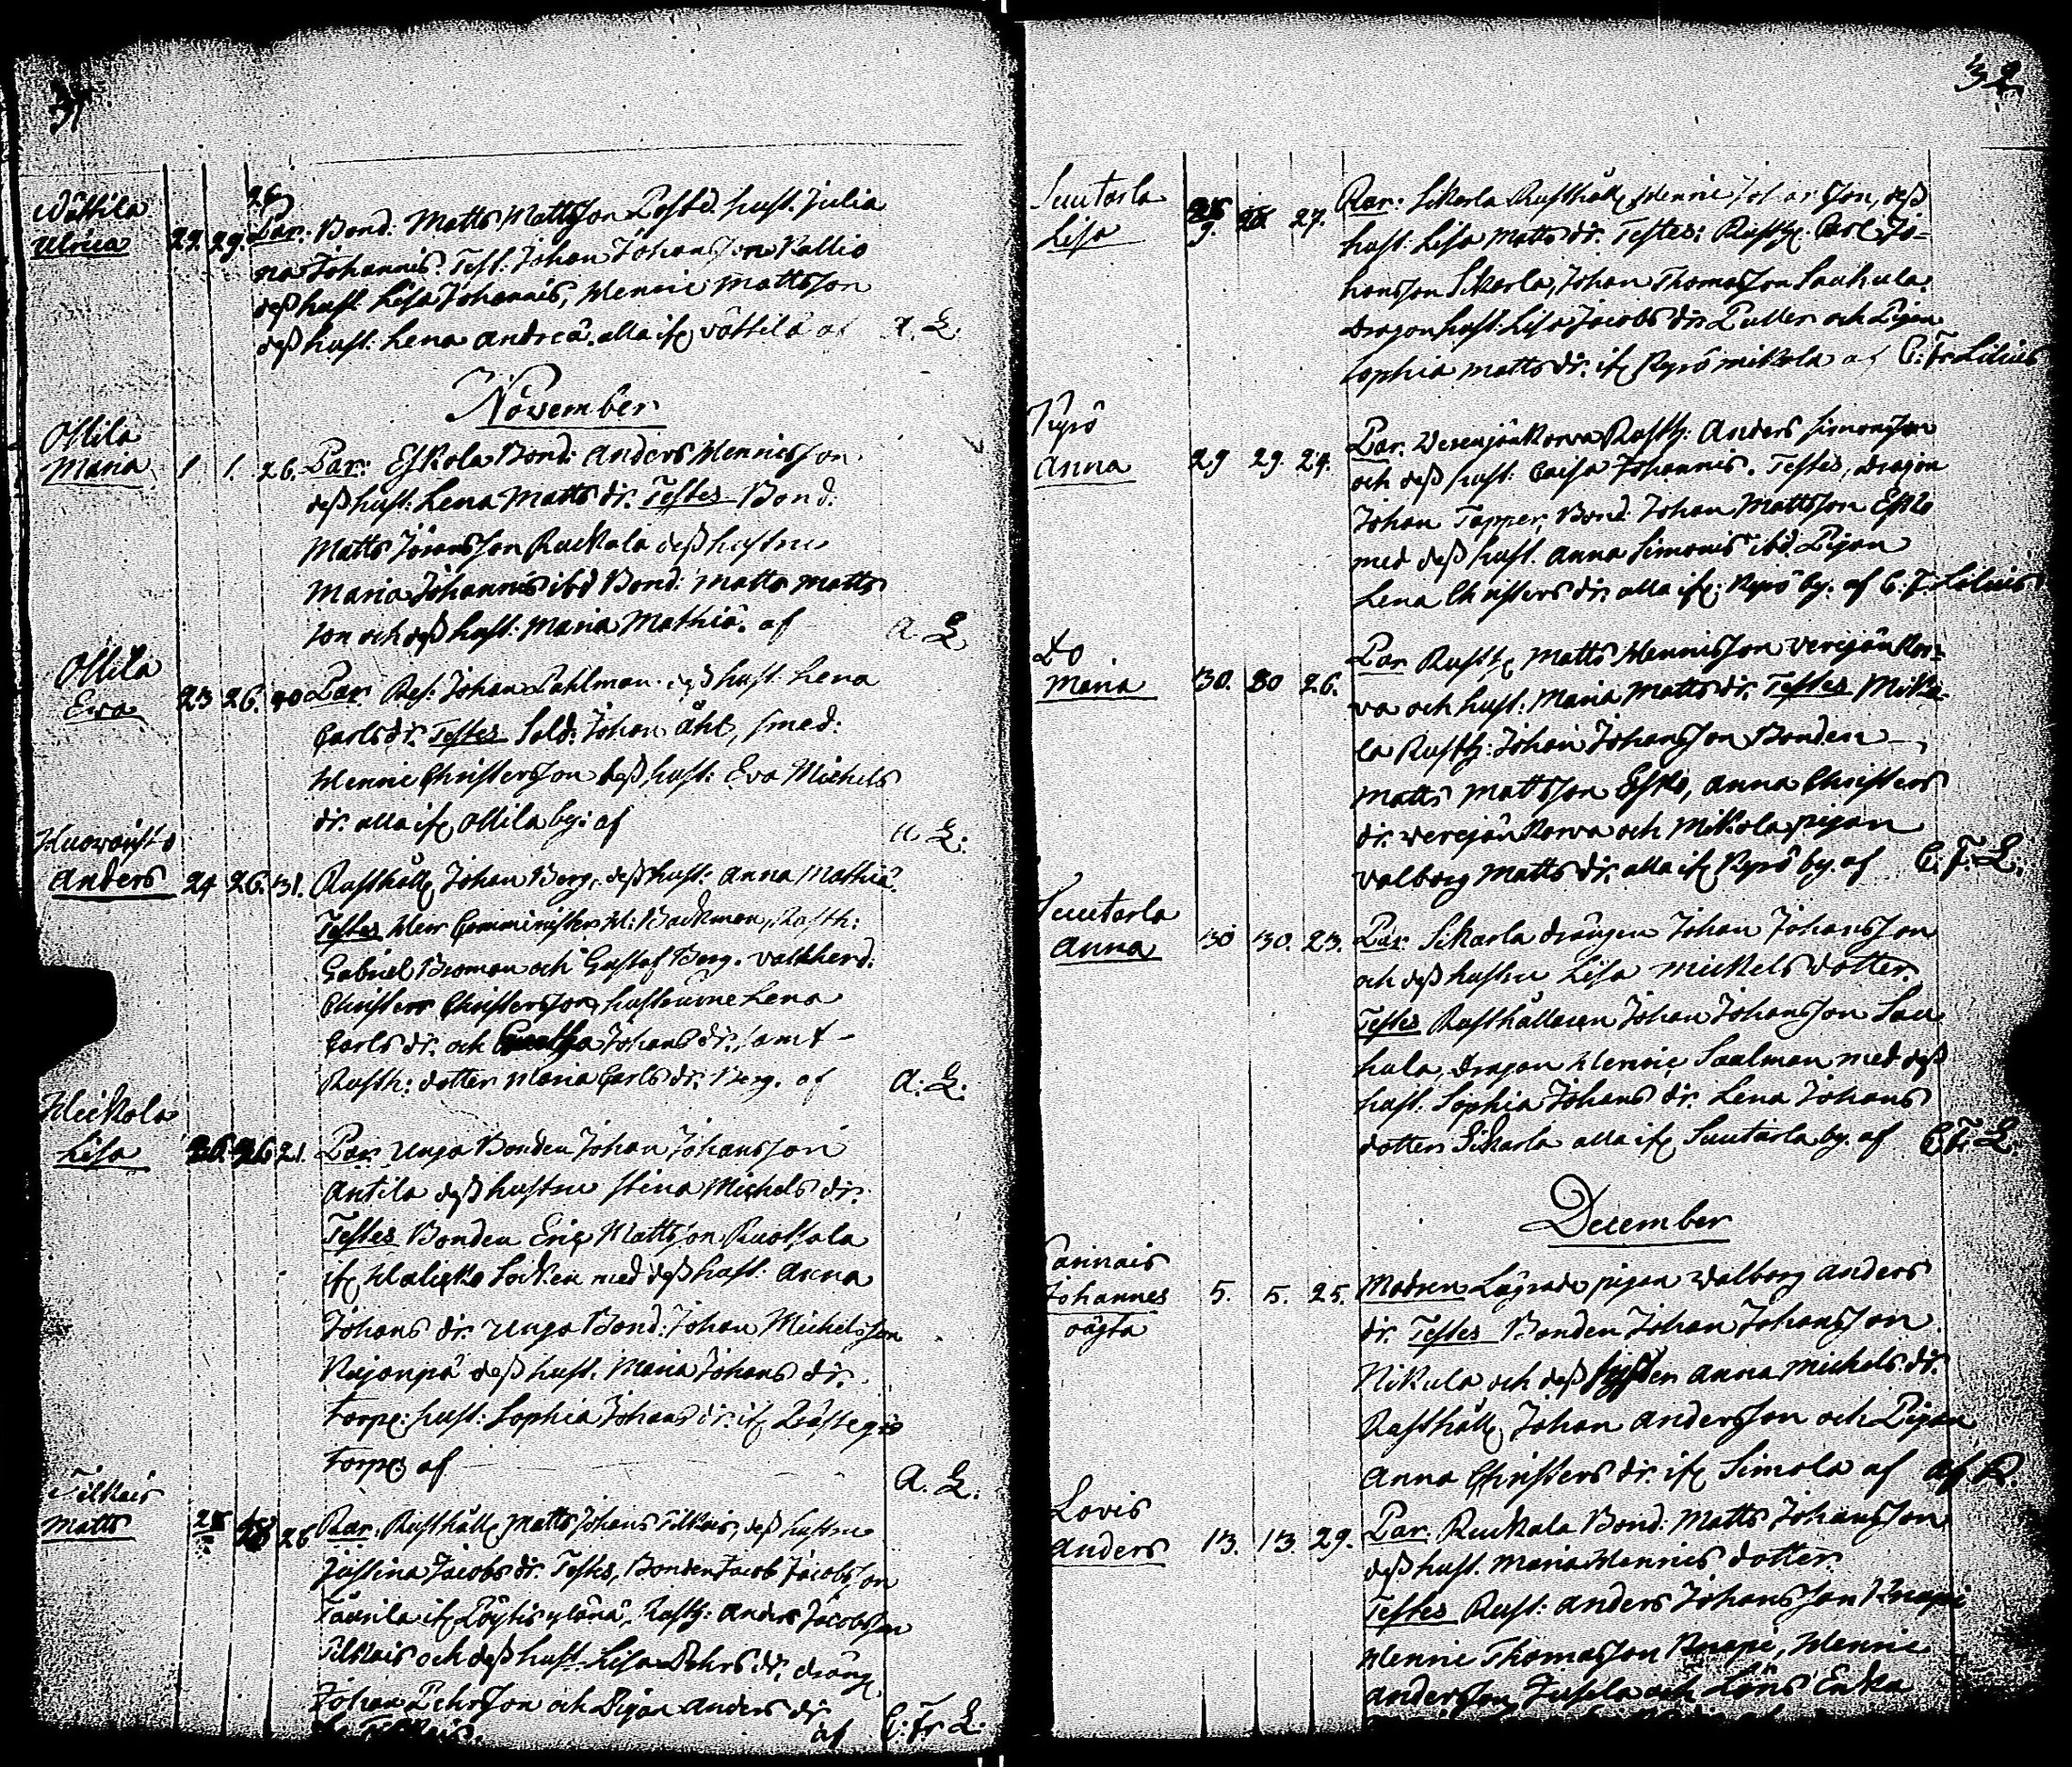 31
Wättilä
Ulrica 29. 29. 26 Par: Bond: Matts Mattsson Lofsd. hust. Julia
na Johannis. Test: Johan Johansson Kallio
dess hust Lisa Johannis, Henric Mattsson
dess hust: Lena Andreä. alla if. Wättilä af A. L.
November
Ollila
Maria 1. 1. 26. Par: Eskola Bond: Anders Henricsson
dess hust: Lena Matts dr. Testes Bond.
Matts Göransson Ruckala dess hustru
Maria Johannis ibd Bond: Matts Matts
son och dess hust: Maria Mathiä. af A. L
Ollila
Eva 23 26. 40 Par. Res: Johan Pahlman. dess hust. Lena
Carls dr. Testes Sold: Johan Åhl, smed:
Henric Christersson dess hust: Eva Michels
dr. alla if. Ollila by: af A. L:
Anders 24 26. 31. Rusthåll. Johan Berg, dess hust: Anna Mathiä.
Testes Herr Comminister H: Backman, Rusth:
Gabriel Broman och Gustaf Berg. Valkherd.
Christer Christersson, hustrurne Lena
Carls dr. och Johans dr. samt
Rusth: dotter Maria Carls dr. Berg. af A: L:
Heickola
Lisa 26. 26 21. Par. Unga Bonden Johan Johansson
Antila dess hustru Stina Michels dr.
Testes Bonden Eric Mattsson Ruoskala
if. Halicko Socken med dess hust: Anna
Johans dr. Unga Bond: Johan Michelsson
Rajanpä dess hust. Maria Johans dr.
Torp: hust: Sophia Johans dr. if.
Torp. af A. L.
Tilkais
Matts 28 28 26 Par. Rusthåll. Matts Johans Tilkais, dess hustru
Justina Jacobs dr. Testes, Bonden Jacob Jacobsson
Täurila if. Pöytis Yläne, Rusth: Anders Jacobsson
Tilkais och dess hust. Lisa Pehrs dr, dräng
Johan Pehrsson och Pigan Anders dr
Tilkais. af C: Fr. L:
32
Suutarla
Lisa 9. 28. 27. Par: Sikarla Rusthåll. Henric Johansson, dess
hust: Lisa Matts dr. Testes: Rusth. Carl Jo-
hansson Sikarla, Johan Thomasson Sauhula.
Dragon hust: Lisa Jacobs dr. Puller och Pigan
Sophia Matts dr. if. Kyrö Mikola af C: Fr Lilius
Kyrö
Anna 29 29. 24. Par. Werenjänkorva Rusth: Anders Simonsson
och dess hust: Caisa Johannis. Testes, Dragon
Johan Tapper, Bond. Johan Mattsson Esko
med dess hust. Anna Simonis ibd. Pigan
Lena Christers dr. alla if: Kyrö by. af C. F. Lilius
Do
Maria 30. 30 26. Par Rusth. Matts Henricsson Verejänkor-
va och hust: Maria Matts dr. Testes Miko-
la Rusth: Johan Johansson Bonden
Matts Mattsson Esko, Anna Christers
dr. Verejänkorva och Mikola pigan
Valborg Matts dr. alla if. Kyrö by. af C. F. L.
Suutarla
Anna 30 30. 23. Par. Sikarla drängen Johan Johansson
och dess hustru Lisa Mickels dotter.
Testes Rusthållaren Johan Johansson Sau
hula, Dragon Henric Saalman med dess
hust. Sophia Johans dr. Lena Johans
dotter Sikarla alla if. Suutarla by. af C. Fr. L.
December
Johannes
oägta 5. 5. 25. Modren Lägrade pigan Walborg Anders
dr. Testes Bonden Johan Johansson
Nikula och dess syster Anna Michels dr.
Rusthåll. Johan Andersson och Pigan
Anna Christers dr. if. Simola af af R.
Lovis
Anders 13. 13. 29. Par. Ruckala Bond: Matts Johansson
dess hust. Maria Henrics dotter
Testes Rust: Anders Johansson Knapi
Henric Thomasson Knapi, Henric
Andersson Jusela och Löris Enka